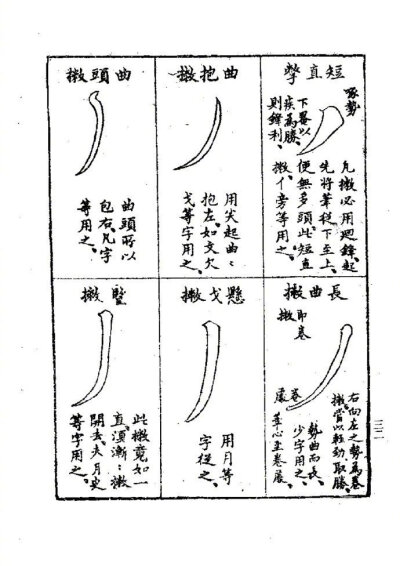 短直撆
啄勢
下畧以
疾為勝、
則鋒利、
凡撇必用迴鋒、起
先將筆從下至上、
便無多頭、此短直
撇、亻旁等用之、
曲抱撇
用尖起曲：
抱左、如文欠
戈等字用之、
曲頭撇
曲頭所以
包右、凡字
等用之、
長曲撇
即卷
撇
右向左之勢為卷
撇、貴以輕勁取勝、
勢曲而長、
少字用之、
筆心至卷處、
卷
處
懸戈撇
用月等
字從之、
豎撇
此撇竟如一
直、須漸：撇
開去、夫月史
等字用之、
三二